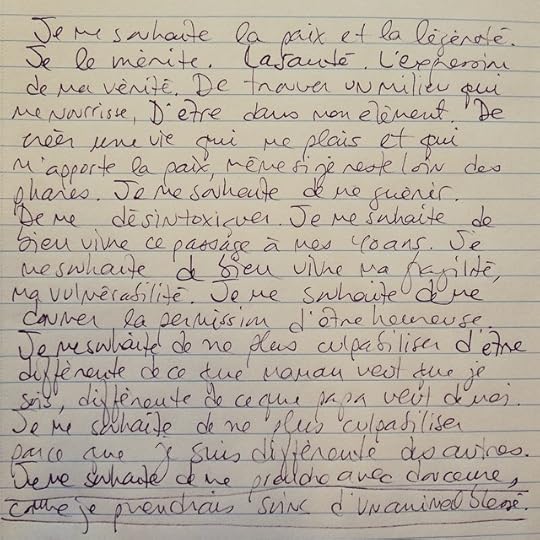 Je me souhaite la paix et la légèreté.
Je le mérite. La santé. L'expression
de ma vérité. De trouver un milieu qui
me nourrisse, D'être dans mon élément. De
créer une vie qui me plais et qui
m'apporte la paix, même si je reste loin des
phares. Je me souhaite de me guérir.
De me désintoxiquer. Je me souhaite de
bien vivre ce passage à mes 40 ans. Je
me souhaite de bien vivre ma fragilité,
ma vulnérabilité. Je me souhaite de me
donner la permission d'être heureuse.
Je me souhaite de ne plus culpabiliser d'être
différente de ce que maman veut que je
sois, différente de ce que papa veut de moi.
Je me souhaite de ne plus culpabiliser
parce que je suis différente des autres.
Je me souhaite de me prendre avec douceur,
comme je prendrais soins d'un animal blessé.